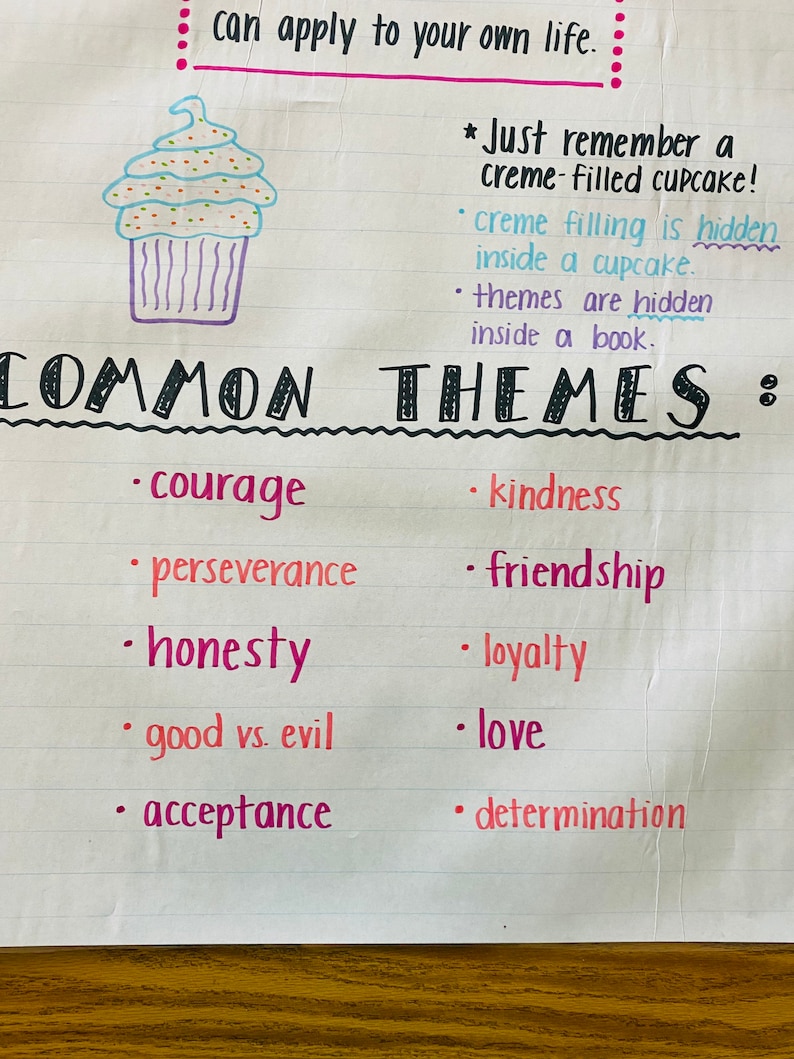 can apply to your own life.
* Just remember a
creme-filled cupcake!
• creme filling is hidden
inside a cupcake.
• themes are hidden
inside a book.
COMMON THEMES:
• courage
• perseverance
• honesty
• good vs. evil
• acceptance
• kindness
• friendship
• loyalty
• love
• determination